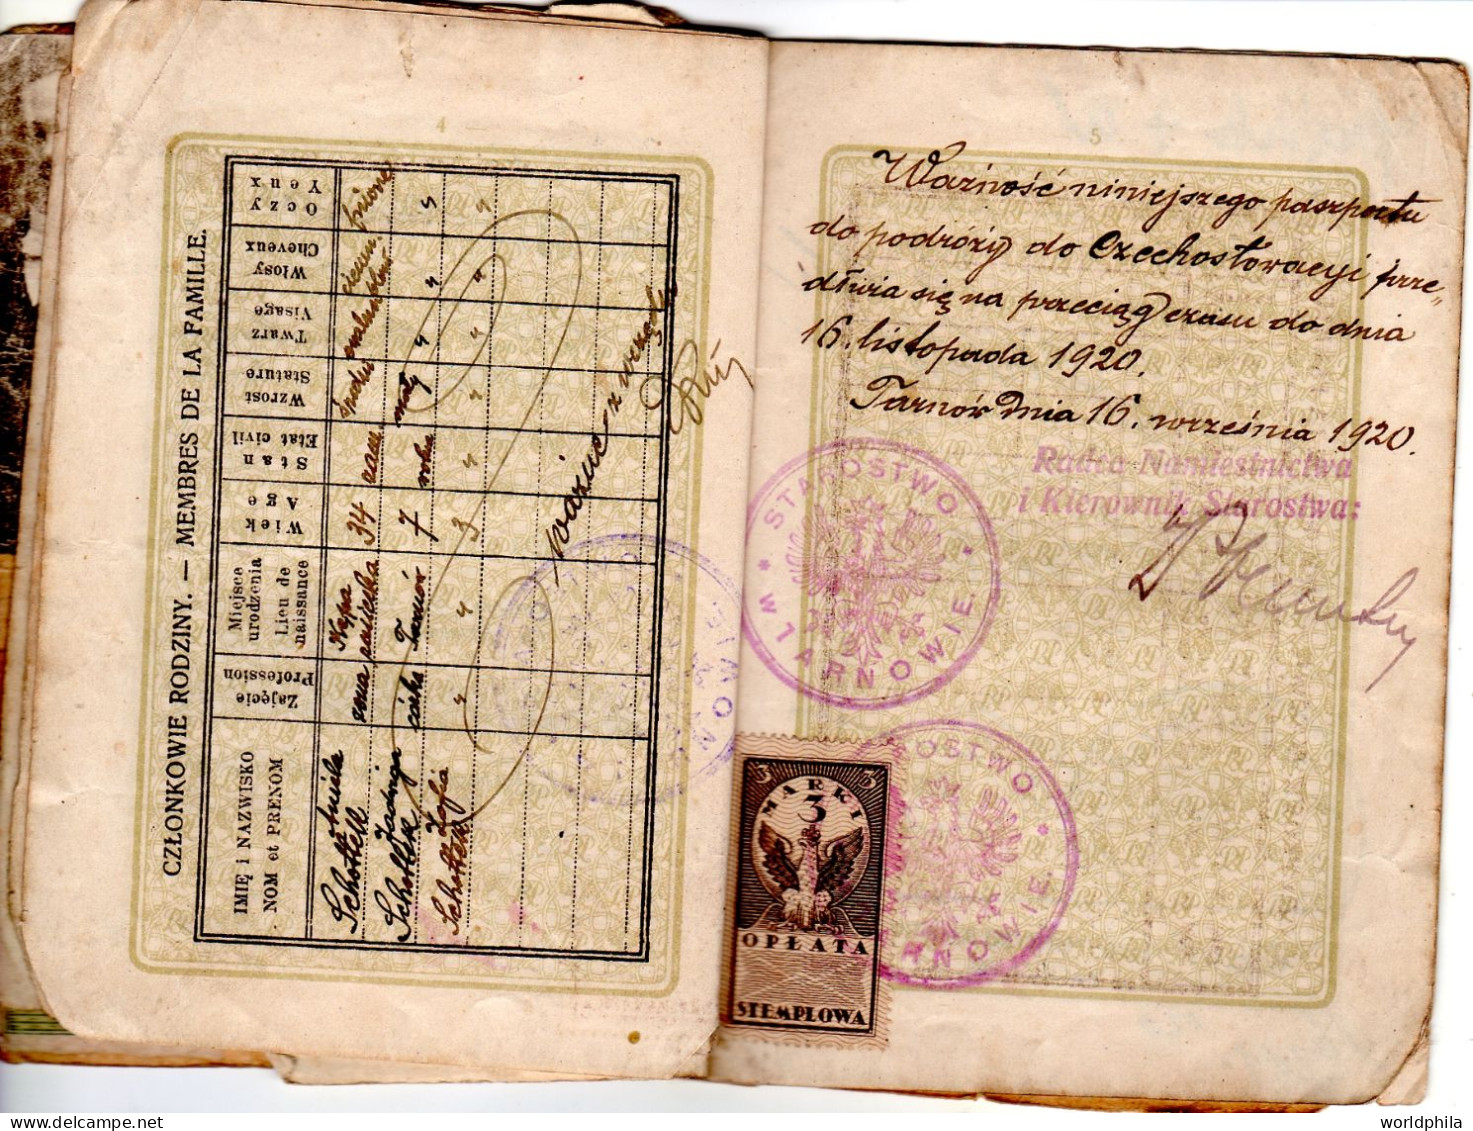 4
CZŁONKOWIE RODZINY. — MEMBRES DE LA FAMILLE.
IMIĘ i NAZWISKO
NOM et PRENOM
Zajęcie
Profession
Miejsce
urodzenia
Lieu de
naissance
Wiek
Age
Stan
Etat civil
Wzrost
Stature
Twarz
Visage
Włosy
Cheveux
Oczy
Yeux
Schottek
żona
34
Schottek Jadwiga
córka
Tarnów
7
mały
" "
Schottek Zofia
" "
3
" " " " "
5
Ważność niniejszego paszportu
do podróży do Czechosłowacyi prze-
dłuża się na przeciąg czasu do dnia
16. listopada 1920.
Tarnów dnia 16. września 1920.
Radca Namiestnictwa
i Kierownik Starostwa:
* STAROSTWO *
W TARNOWIE.
STAROSTWO *
W TARNOWIE.
3 3
MARKI
3
OPŁATA
STEMPLOWA
worldphila